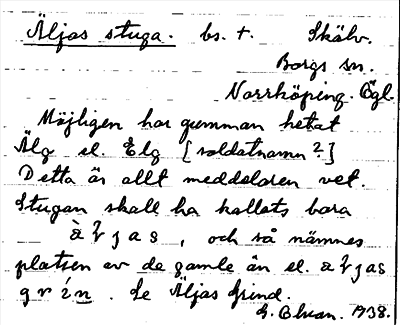 Äljas stuga. bs. †. Skälv.
Borgs sn.
Norrköping. Ögl.
Möjligen har gumman hetat
Älg el. Elg [soldatnamn?]
Detta är allt meddelaren vet.
Stugan skall ha kallats bara
àƚjas, och så nämnes
platsen av de gamle än el. aƚjas
grén. Se Äljas Grind.
1938.